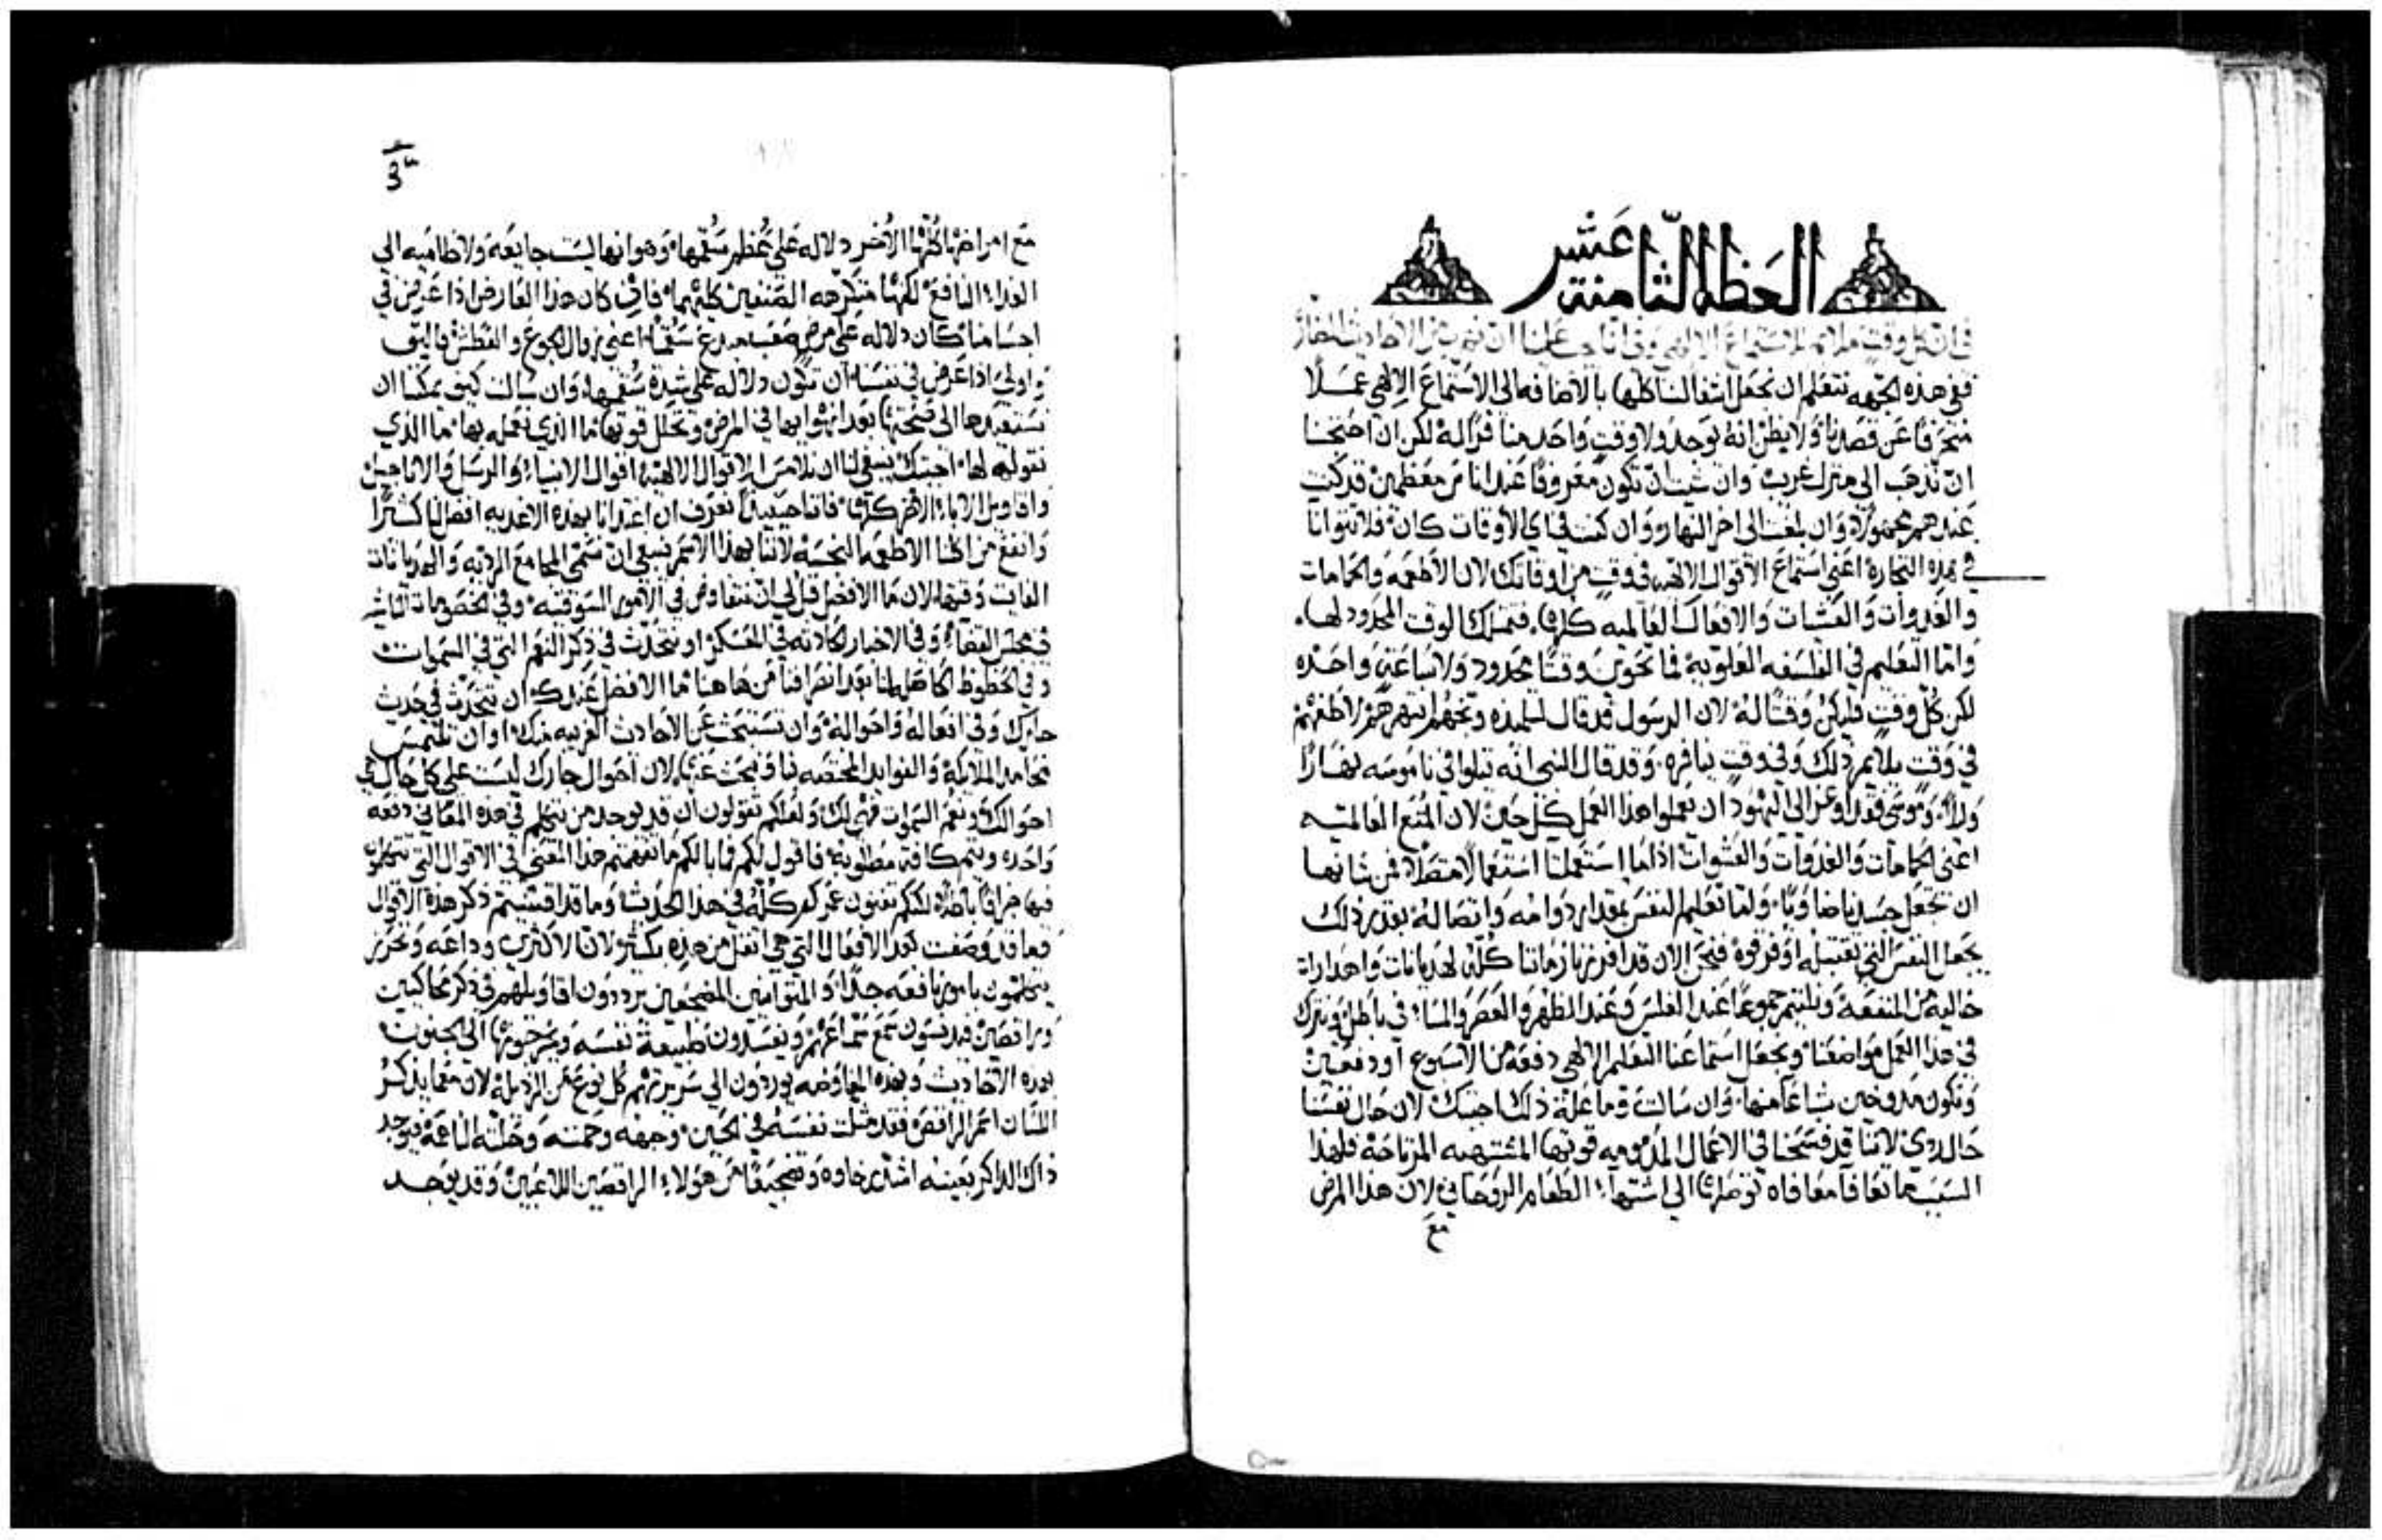 العظه الثامنة عشر
في ان كل وقت ملايم لاستماع الالهي وفي انا يجب علينا ان نهرب من الاحاديث
ففي هذه الجهه نتعلم ان نجعل اشغالنا كلها بالاضافه الى الاستماع الالهي عملا
منحرفا عن قصدنا ولا يظن انه يوجد ولا وقت واحد منا لكن ان احتجنا
ان نذهب الى منزل غريب وان شيت ان تكون معروفا عند اناس معظمين
عندهم مجهولا وان بلغت الى اخر النهار وان كنت في اي الاوقات كان فلا تتوانا
في هذه التجاره اعني استماع الاقوال الالهيه في وقت من اوقاتك لان الاطعمه والحمامات
والغدوات والعشيات والافعال العالميه كلها فتمتلك الوقت المحدود لها
واما التعليم في الفلسفه العلويه فما تحوي وقتا محدود ولا ساعه واحده
لكن كل وقت فليكن وقتا له لان الرسول قد قال لتلميذه
في وقت يلايم ذلك وفي وقت ينافره وقد قال النبي انه تتلوا في ناموسه نهارا
وليلا وموسى فقد اوعز الى اليهود ان يعملوا هذا العمل كل حين لان المتع العالميه
اعني الحمامات والغدوات والعشوات اذا ما استعملنا استعمالا متصلا فمن شانها
ان تجعل جسدنا ضاويا واما تعليم النفس بمقدار دوامه واتصاله بقدر ذلك
يجعل النفس التي تقتبله اوفر قوه فنحن الان قد افرزنا زماننا كله لهذيانات واهدارات
خاليه من المنفعه ونلتيم جموعا عند الغلس وعند الظهر والعصر والمسا في باطل ونترك
في هذا العمل مواضعنا ونجعل استماعنا التعليم الالهي دفعه من الاسبوع او دفعتين
ونكون مدوخين شباعا منها وان سالت وما علة ذلك اجبتك لان حال نفسنا
حال ردي لاننا قد فسخنا في الاعمال المذمومه قوتها المشتهيه المرتاحه فلهذا
السبب ما تعافا معافاه توصلها الى اشتهاء الطعام الروحاني لان هذا المرض
مع
مع امراضها كلها الاخر دلاله على عظم سقمها وهو انها ليست جايعه ولا ظاميه الى
الغداء النافع لكنها متكرهه الصنفين كليهما فان كان هذا العارض اذا عرض في
اجسامنا كان دلاله على مرض صعب اعني زوال الجوع والعطش فاليق
واولى اذا عرض في نفسنا ان تكون دلاله على شدة سقمها وان سالت كيف يمكننا ان
نستعيدها الى صحتها بعد انهوايها في المرض وتحلل قوتها ما الذي نعمله بها ما الذي
نقوله لها اجبتك ينبغي لنا ان نلامس الاقوال الالهيه اقوال الانبياء والرسل والاناجيل
واقاويل الاباء الاخر كلها فاننا حينيذ نعرف ان اغتدانا بهذه الاغديه افضل لنا كثيرا
وانفع من اكلنا الاطعمه النجسه لاننا بهذا الاسم ينبغي ان نسمي المجامع الرديه والهديانات
الفايت وقتها لان ما الافضل قل لي ان نتفاوض في الامور السوقيه وفي الخصومات
في مجلس القضاء وفي الاخبار الحادثه في العسكر او نتحدث في ذكر النعم التي في السموات
وفي الحظوظ الحاصله لنا بعد انصرافنا من هاهنا ما الافضل عندك ان تتحدث في حديث
جارك وفي افعاله واحواله وان تستبحث عن الاحاديث الغريبه منك او ان تلتمس
محامد الملايكه والفوايد المختصه بنا وتبحث عنها لان احوال جارك ليست على كل حال
احوالك ونعم السموات فهي لك ولعلكم تقولون ان قد يوجد من يتكلم في هذه المعاني دفعه
واحده ويتمم كافة مطلوبه فاقول لكم فما بالكم ما تفهمتم هذا المعنى في الاقوال التي تتكلمون
فيها جزافا باطلا لكنكم تفنون عمركم كله في هذا الحديث وما قد افنيتم ذكر هذه الاقوال
فما قد وصفت بعد الافعال التي هي اثقل من هذه بكثير لان الاكثرين وداعه وتحرز
يتكلمون بامور نافعه جدا والمتوانين المضجعين يرددون اقاويلهم في ذكر محاكيين
وراقصين فيدنسون سمع سماعهم ويفسدون طبيعة نفسه ويزحونها الى الجنون
بهذه الاحاديث وبهذه المفاوضه يوردون الى سريرتهم كل نوع من الرذيله لان معما يذكر
اللسان اسم الراقص فقد مثلت نفسه في الحين وجهه وجمته وحلته الناعمه فيوجد
ذاك الذاكر بعينه اشد رخاوه وتضجيعا من هولاء الراقصين اللاعبين وقد يوجد